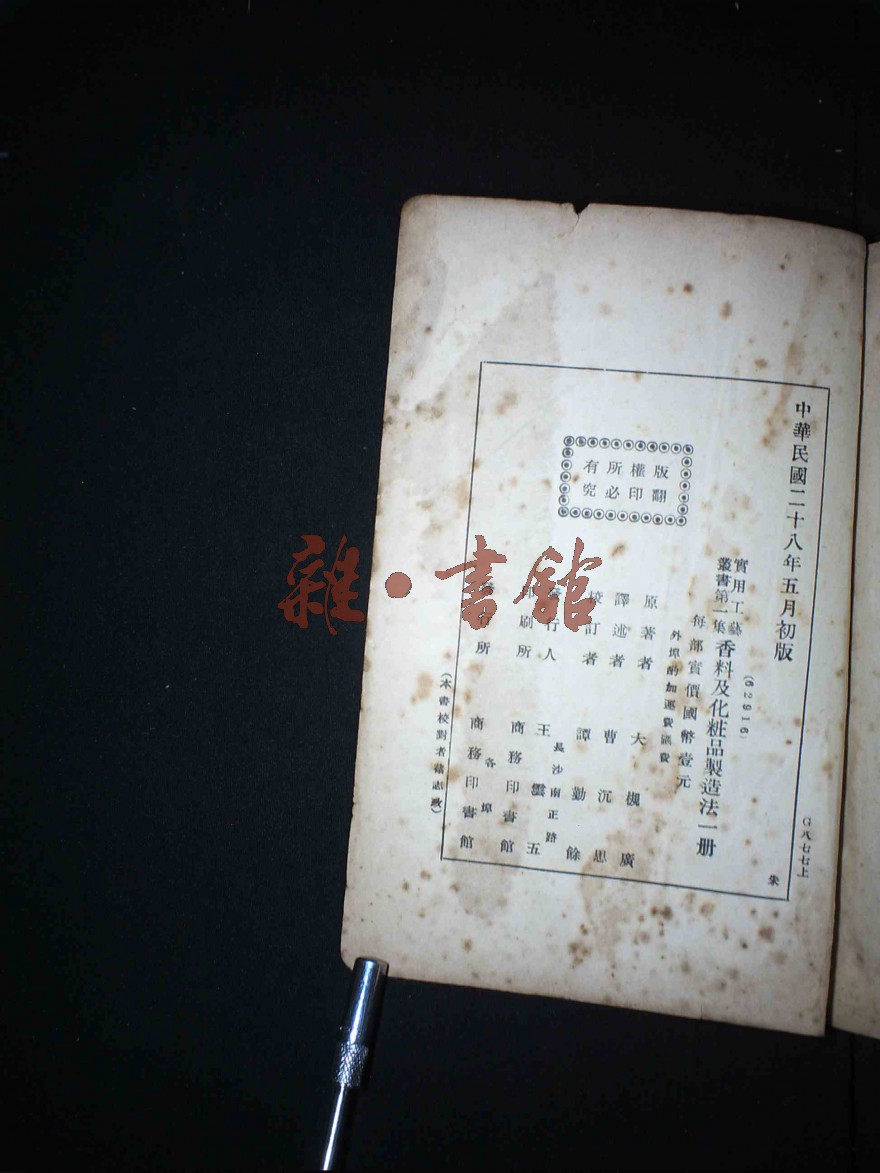 中華民國二十八年五月初版
(62916)
實用工藝
叢書第一集
香料及化粧品製造法一册
每部實價國幣壹元
外埠酌加運費匯費
版權所有
翻印必究
原著者 大槻廣
譯述者 曹沉思
校訂者 譚勤餘
發行人 王雲五
長沙南正路
印刷所 商務印書館
各埠
發行所 商務印書館
(本書校對者
G八七七上
雜·書館